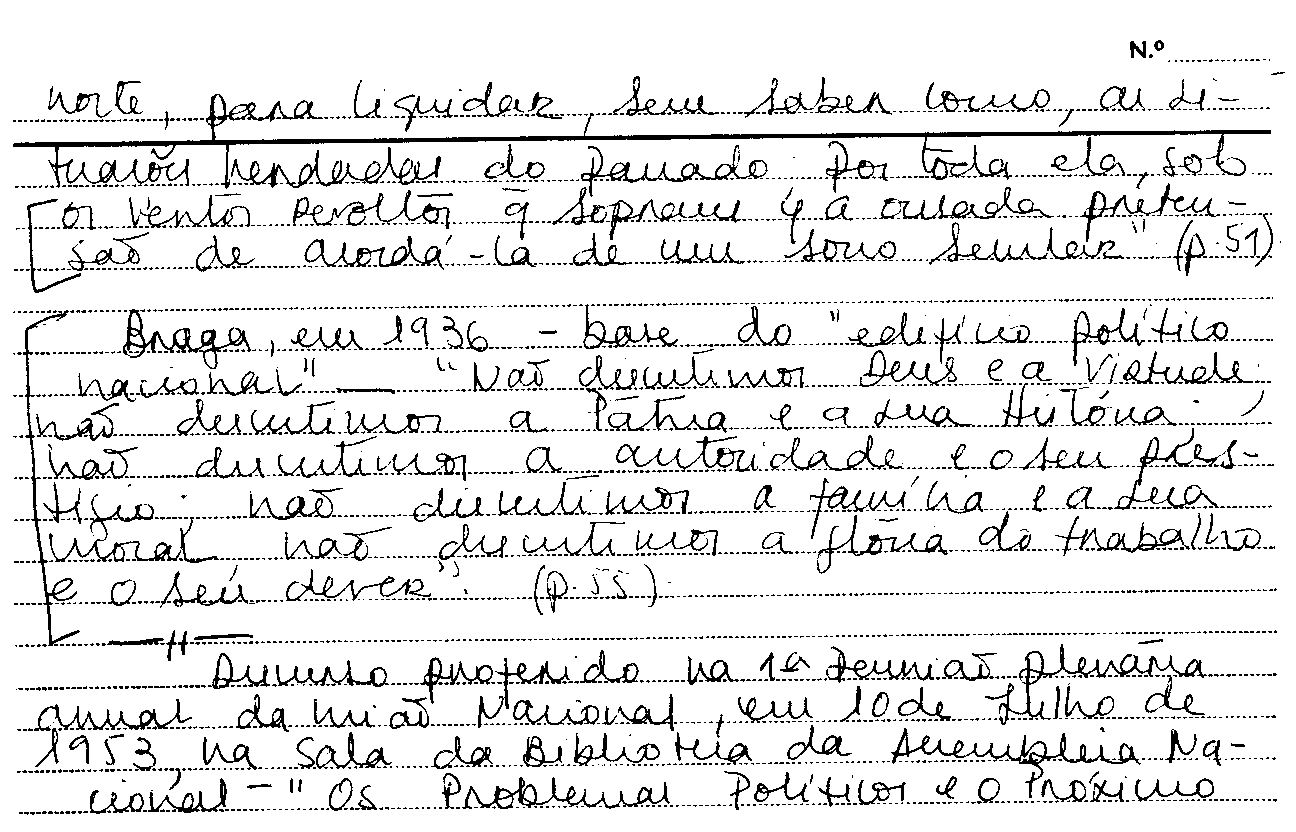 N.º
norte, para liquidar, sem saber como, as si-
tuações herdadas do passado. Por toda ela, sob
os ventos revoltos q sopram é a ousada preten-
são de acordá-la de um sono secular" (p. 51)
Braga, em 1936 - base do "edifício político
nacional" — "Não discutimos Deus e a Virtude
não discutimos a Pátria e a sua História;
não discutimos a autoridade e o seu pres-
tígio; não discutimos a família e a sua
moral, não discutimos a glória do trabalho
e o seu dever". (p. 55)
—"—
Discurso proferido na 1ª reunião plenária
anual da União Nacional, em 10 de Julho de
1953, na Sala da Biblioteca da Assembleia Na-
cional - "Os Problemas Políticos e o Próximo